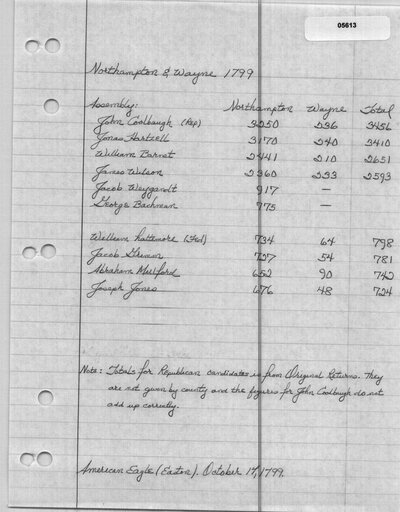 05613
Northampton & Wayne 1799
Assembly: Northampton Wayne Total
John Coolbaugh (Rep) 3250 236 3456
Jonas Hartzell 3170 240 3410
William Barnet 2441 210 2651
James Wilson 2360 233 2593
Jacob Weygandt 917 —
George Backman 775 —
William Lattimore (Fed) 734 64 798
Jacob 727 54 781
Abraham Mulford 652 90 742
Joseph Jones 676 48 724
Note: Totals for Republican candidates is from Original Returns. They
are not given by county and the figures for John Coolbaugh do not
add up correctly.
American Eagle (Easton). October 17, 1799.